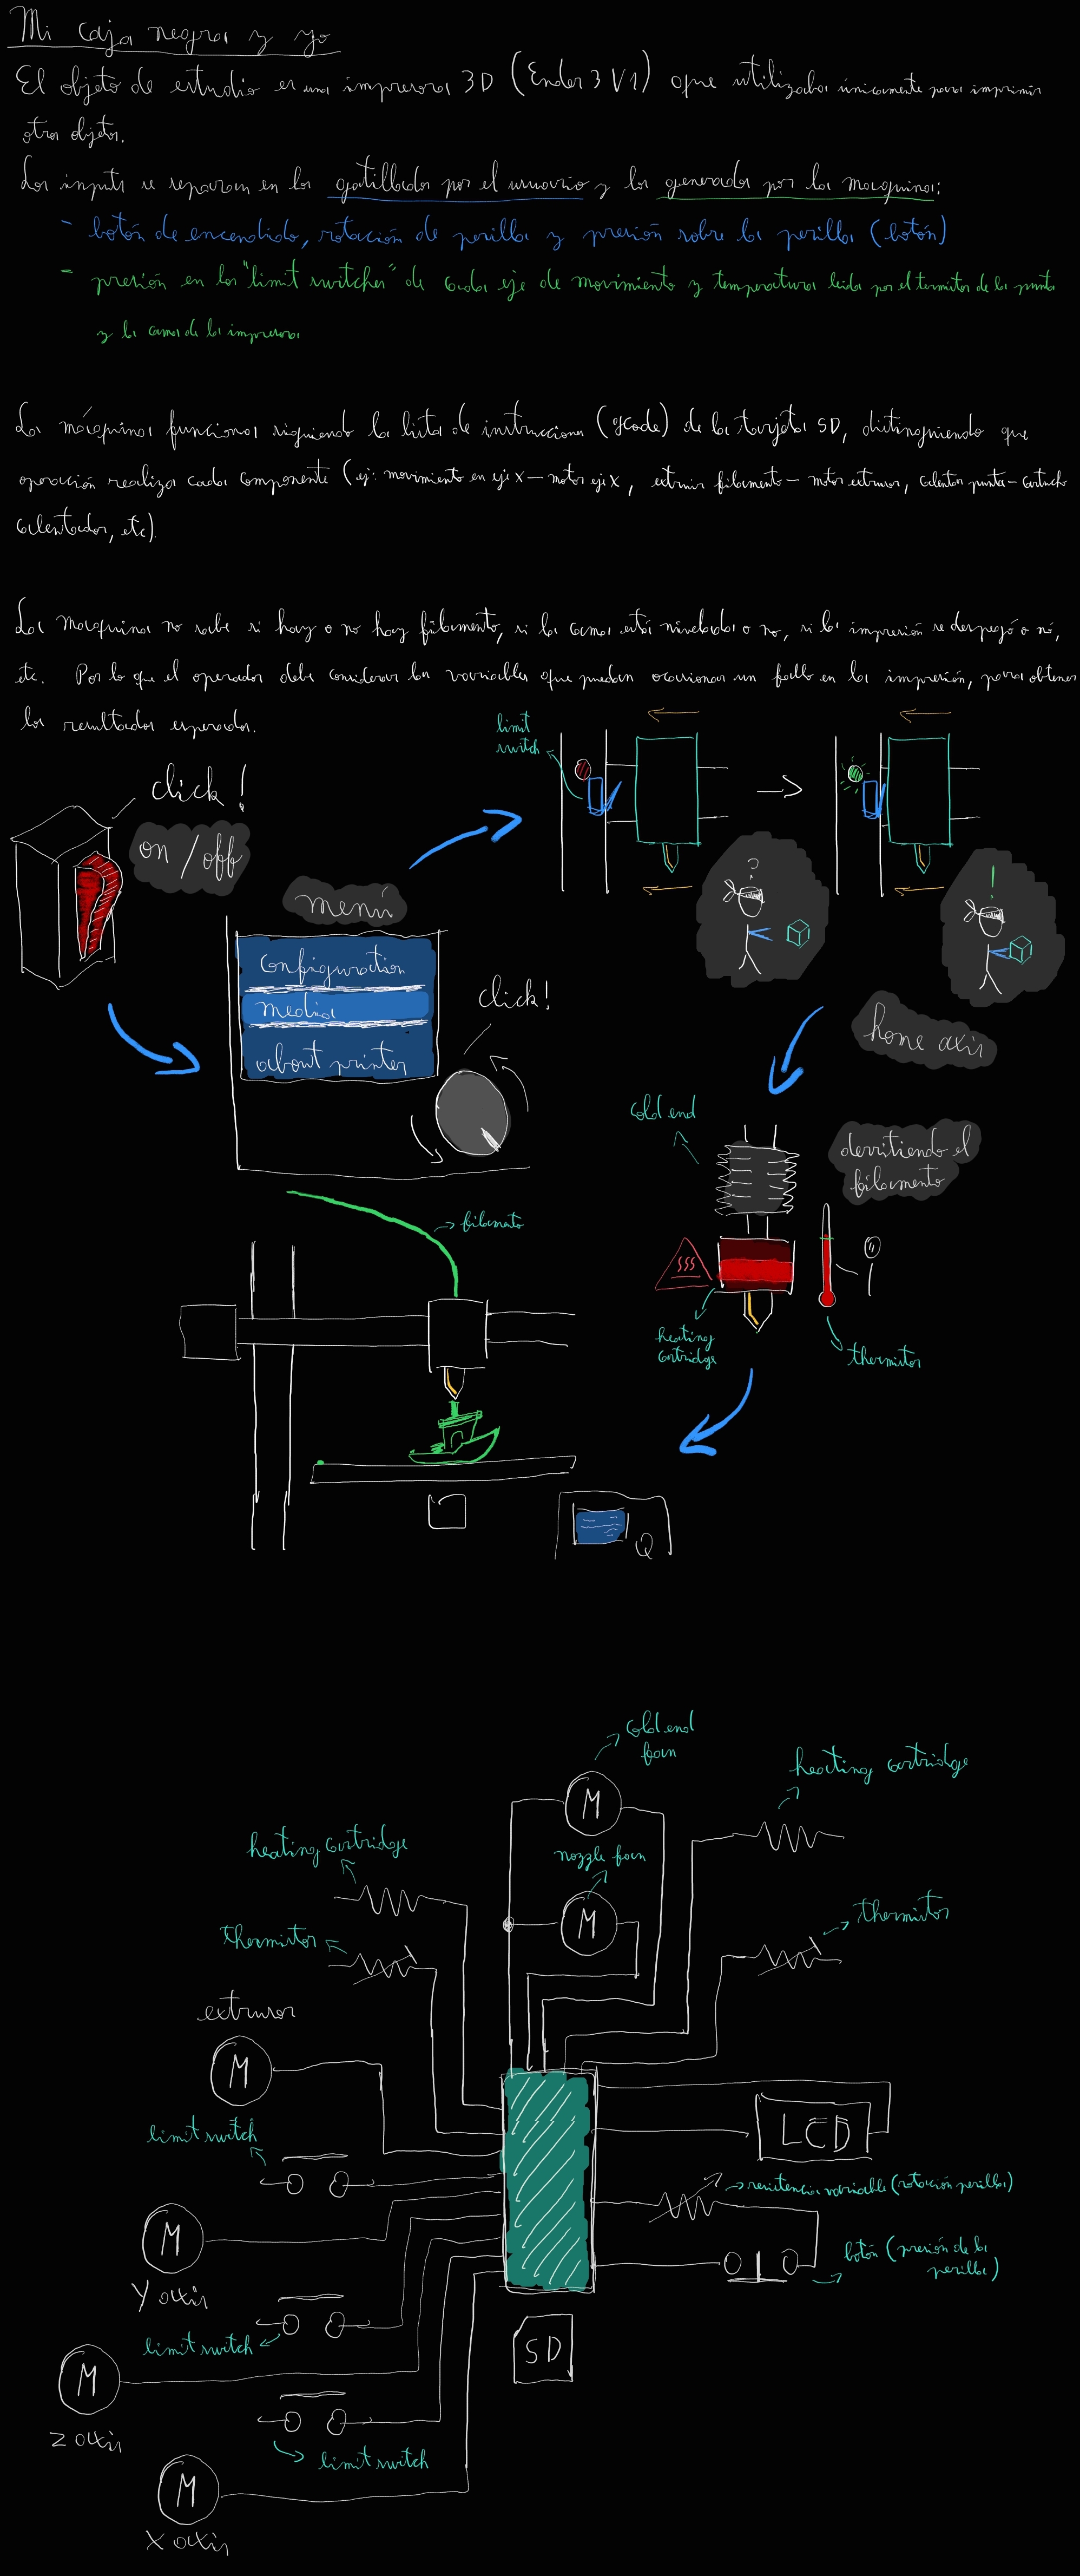 Mi caja negra y yo
El objeto de estudio es una impresora 3D (Ender 3 V1) que utilizaba únicamente para imprimir
otros objetos.
Los inputs se separan en los gatillados por el usuario y los generados por la maquina:
- botón de encendido, rotación de perilla y presión sobre la perilla (botón)
- presión en los "limit switches" de cada eje de movimiento y temperatura leída por el termitor de la punta
y la cama de la impresora
La máquina funciona siguiendo la lista de instrucciones (gcode) de la tarjeta SD, distinguiendo que
operación realiza cada componente (ej: movimiento en eje X - motor eje X, extruir filamento - motor extrusor, calentar punta - cartucho
calentador, etc).
La maquina no sabe si hay o no hay filamento, si la cama está nivelada o no, si la impresión se despegó o nó,
etc. Por lo que el operador debe considerar las variables que puedan ocasionar un fallo en la impresión, para obtener
los resultados esperados.
limit
switch
click!
on/off
menú
?
!
Configuration
media
about printer
click!
home axis
cold end
derritiendo el
filamento
filamento
heating
cartridge
thermistor
cold end
fan
heating cartridge
M
heating cartridge
nozzle fan
M
thermistor
thermistor
extrusor
M
limit switch
LCD
resistencia variable (rotación perilla)
M
botón (presión de la
perilla)
Y axis
limit switch
SD
M
Z axis
limit switch
M
X axis